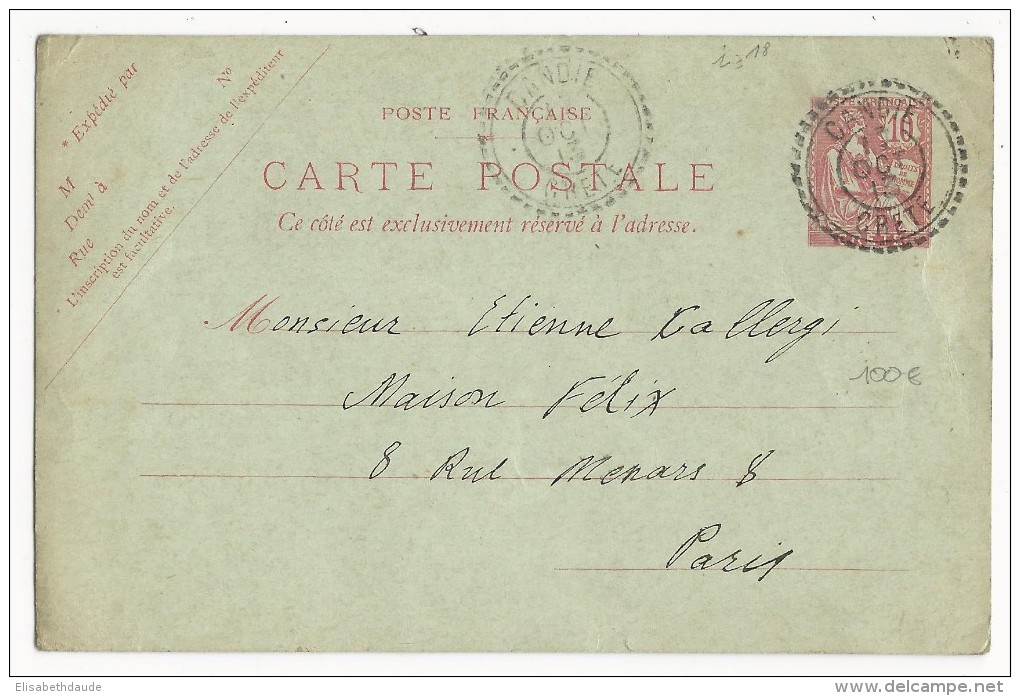 * Expédié par
M
Demt à
Rue
No
L'inscription du nom et de l'adresse de l'expéditeur
est facultative.
CANDIE
CRÈTE
POSTE FRANÇAISE
CARTE POSTALE
Ce côté est exclusivement réservé à l'adresse.
CANDIE
CRÈTE
10
Monsieur Etienne Kallergi
100€
Maison Félix
8 Rue Menars 8
Paris
Elisabethdaude
www.delcampe.net